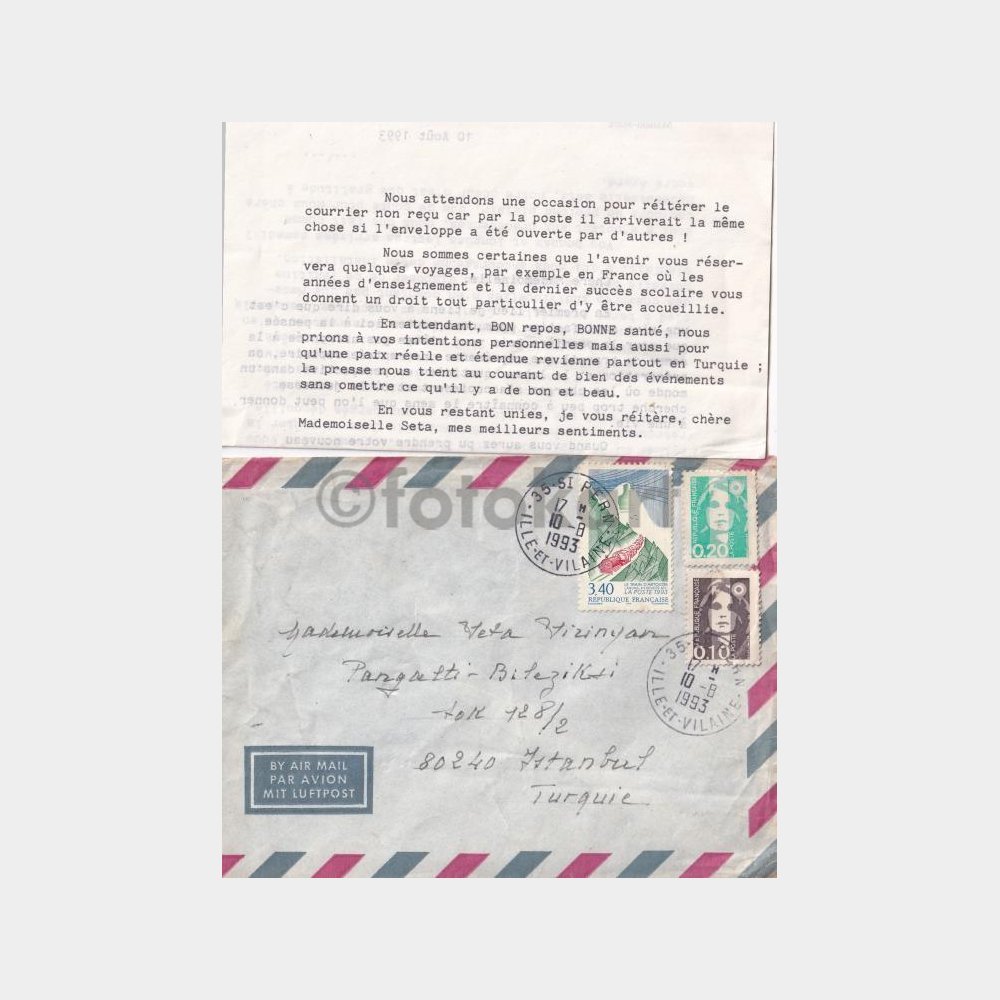 10 Août 1993
Nous attendons une occasion pour réitérer le
courrier non reçu car par la poste il arriverait la même
chose si l'enveloppe a été ouverte par d'autres !
Nous sommes certaines que l'avenir vous réser-
vera quelques voyages, par exemple en France où les
années d'enseignement et le dernier succès scolaire vous
donnent un droit tout particulier d'y être accueillie.
En attendant, BON repos, BONNE santé, nous
prions à vos intentions personnelles mais aussi pour
qu'une paix réelle et étendue revienne partout en Turquie ;
la presse nous tient au courant de bien des événements
sans omettre ce qu'il y a de bon et beau.
En vous restant unies, je vous réitère, chère
Mademoiselle Seta, mes meilleurs sentiments.
©fotokart
35-ST PERN
17 H
10-8
1993
ILLE-ET-VILAINE
3,40
LA POSTE 1993
REPUBLIQUE FRANÇAISE
REPUBLIQUE FRANÇAISE
0,20
LA POSTE
REPUBLIQUE FRANÇAISE
0,10
LA POSTE
35
10-8
1993
ILLE-ET-VILAINE
Mademoiselle Seta
Pangalti - Bilezikçi
sok 128/2
80240 Istanbul
Turquie
BY AIR MAIL
PAR AVION
MIT LUFTPOST